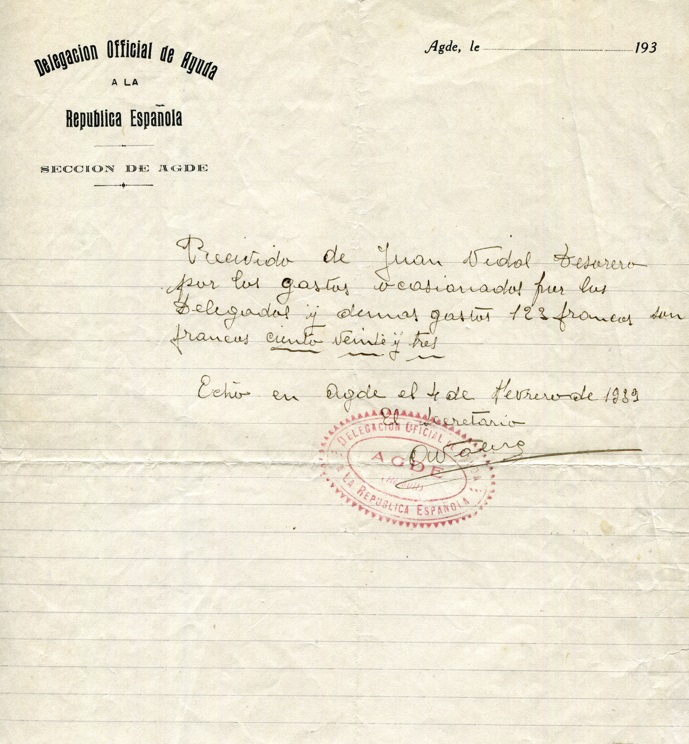 Delegacion Official de Ayuda
A LA
Republica Española
SECCION DE AGDE
Agde, le 193
Recivido de Juan Vidal Tesorero
por los gastos ocasionados por los
Delegados y demas gastos 123 francos son
francos ciento veinte y tres
Echo en Agde el 4 de Fevrero de 1939
El Secretario
DELEGACION OFICIAL
AGDE
A LA REPUBLICA ESPAÑOLA